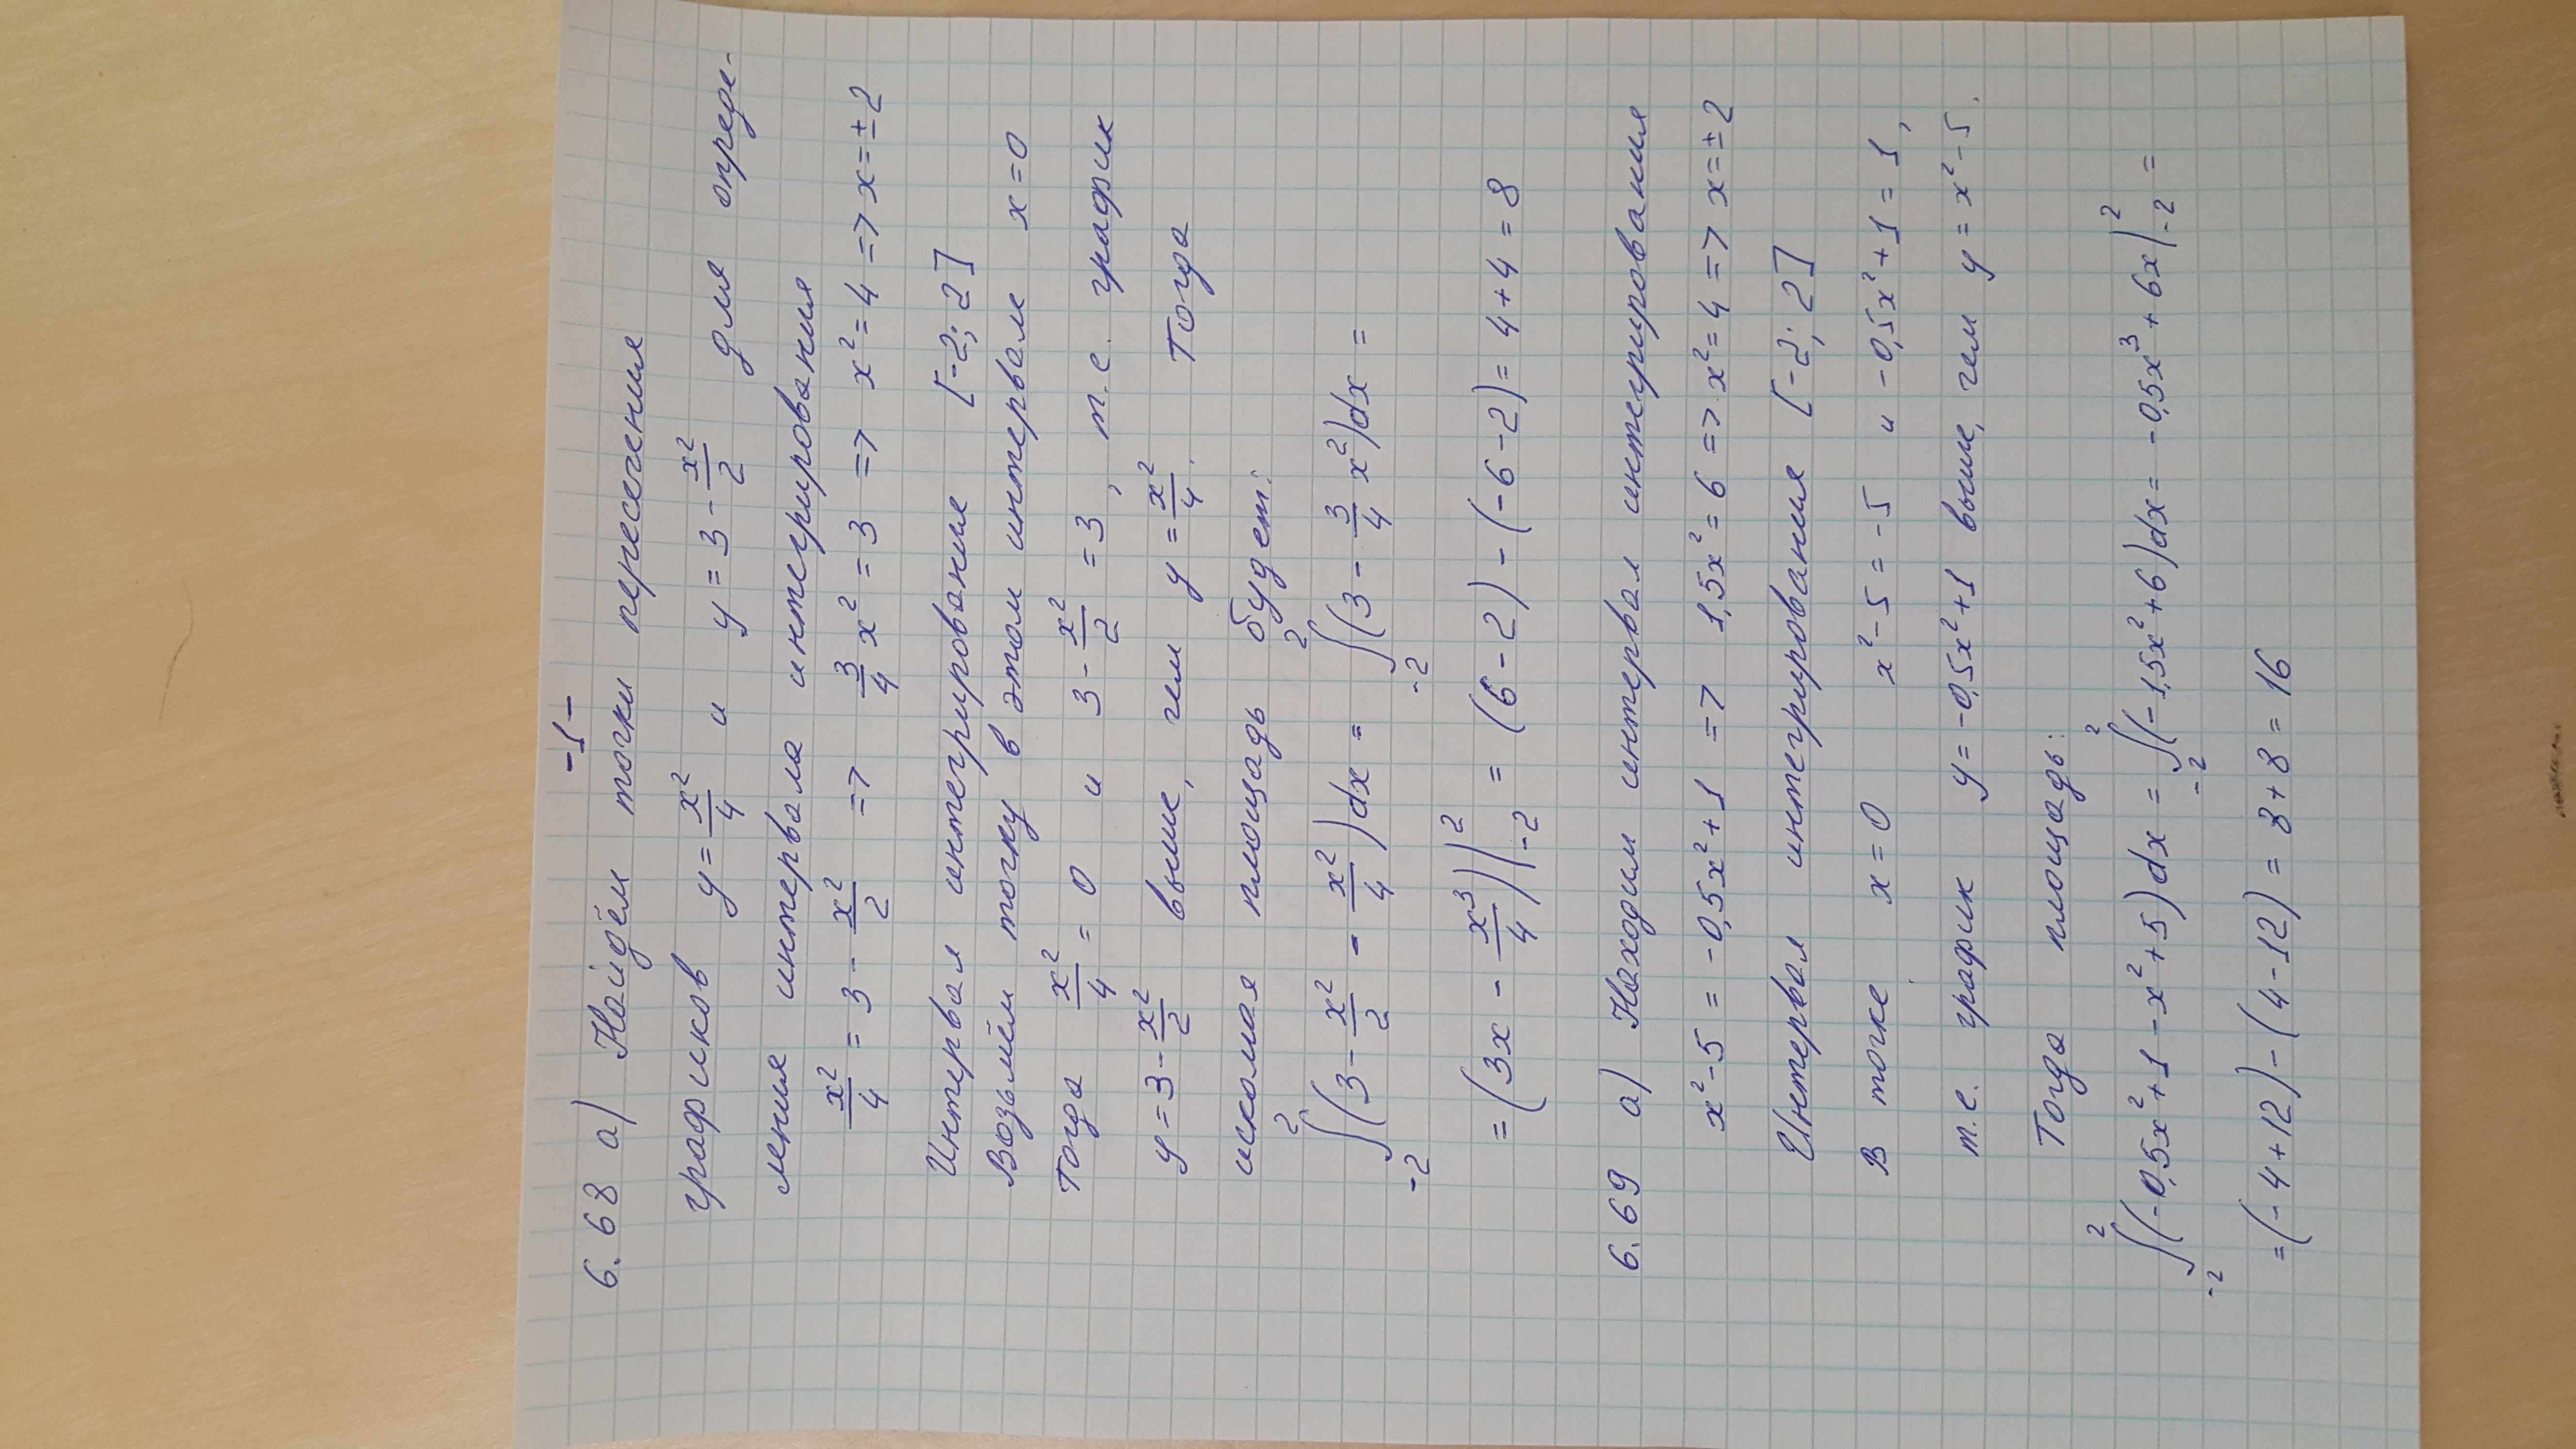 -1-
6.68 а) Найдём точки пересечения
графиков y = x²/4 и y = 3 - x²/2 для опреде-
ления интервала интегрирования
x²/4 = 3 - x²/2 => 3/4 x² = 3 => x² = 4 => x = ±2
Интервал интегрирование [-2; 2]
Возьмём точку в этом интервале x = 0
тогда x²/4 = 0 и 3 - x²/2 = 3, т.е. график
y = 3 - x²/2 выше, чем y = x²/4. Тогда
искомая площадь будет:
∫₋₂²(3 - x²/2 - x²/4)dx = ∫₋₂²(3 - 3/4 x²)dx =
= (3x - x³/4)|₋₂² = (6-2) - (-6-2) = 4+4 = 8
6.69 а) Находим интервал интегрирования
x² - 5 = -0,5x² + 1 => 1,5x² = 6 => x² = 4 => x = ±2
Интервал интегрирования [-2; 2]
В точке x = 0 x² - 5 = -5 и -0,5x² + 1 = 1,
т.е. график y = -0,5x² + 1 выше, чем y = x² - 5.
Тогда площадь:
∫₋₂²(-0,5x² + 1 - x² + 5)dx = ∫₋₂²(-1,5x² + 6)dx = -0,5x³ + 6x|₋₂² =
= (-4+12) - (4-12) = 8+8 = 16